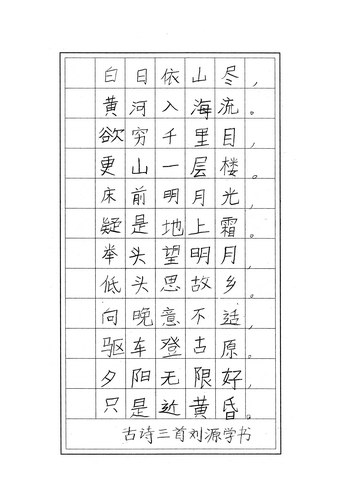 白日依山尽，
黄河入海流。
欲穷千里目，
更山一层楼。
床前明月光，
疑是地上霜。
举头望明月，
低头思故乡。
向晚意不适，
驱车登古原。
夕阳无限好，
只是近黄昏。
古诗三首刘源学书